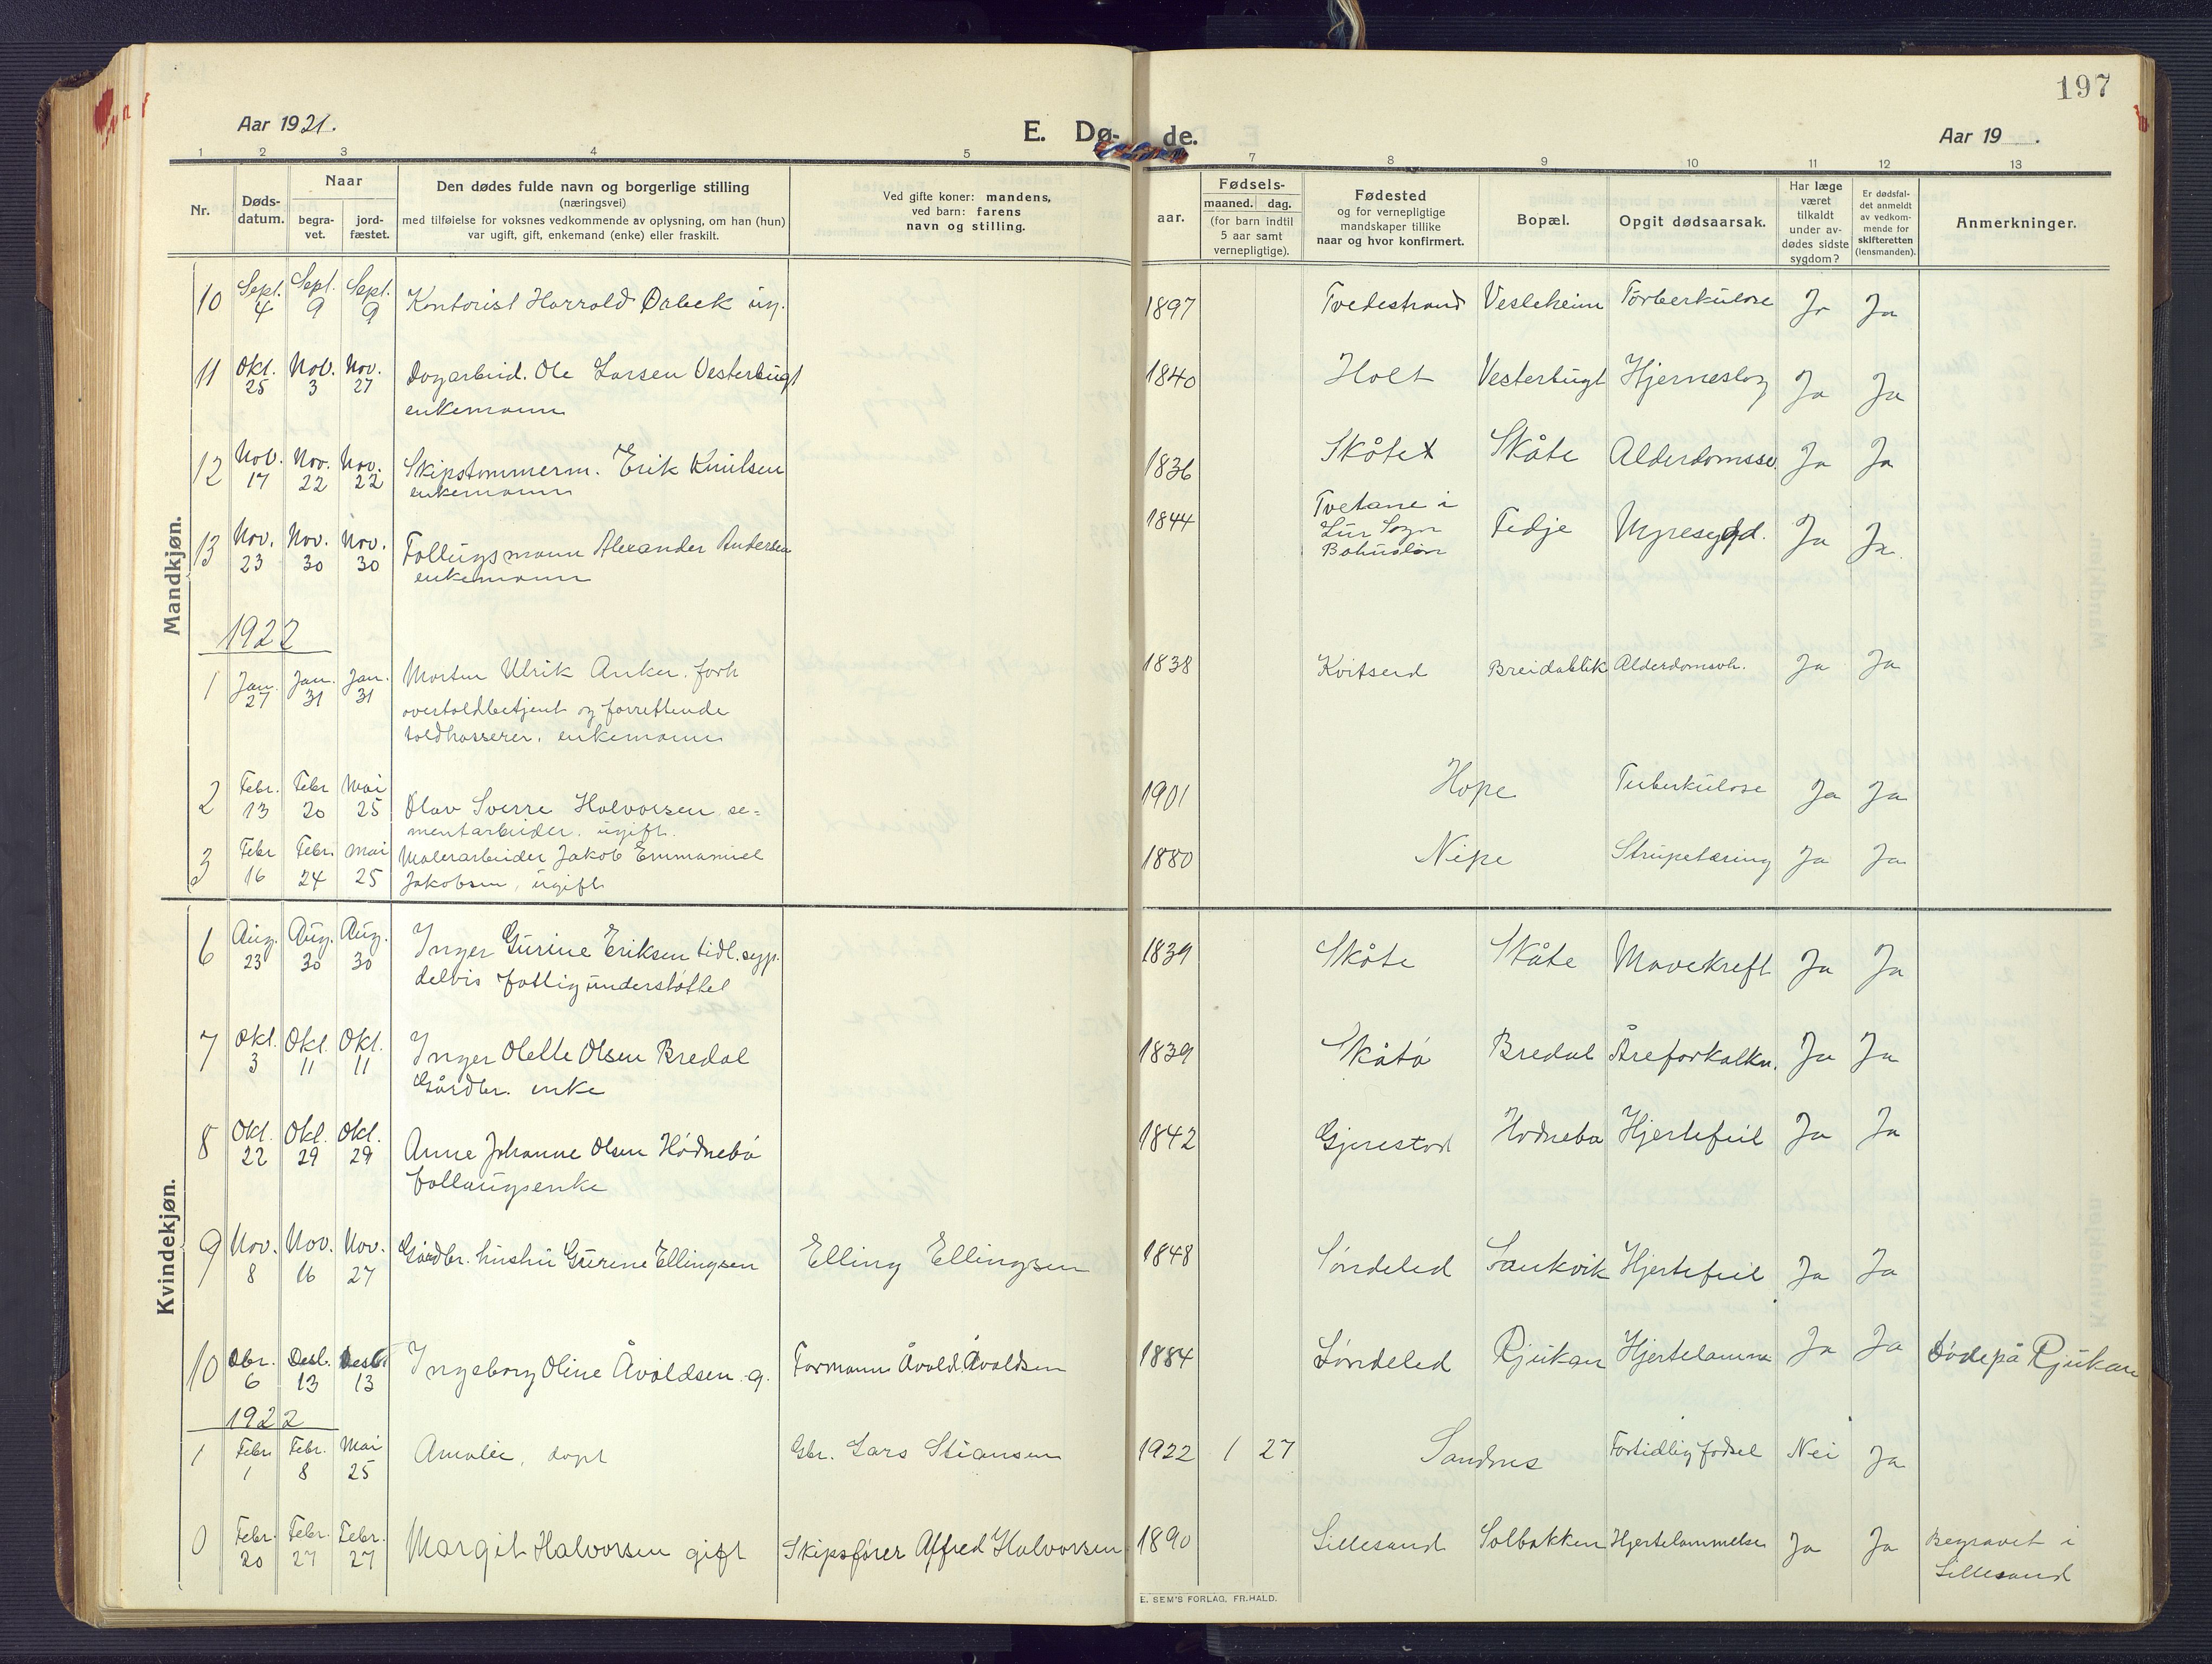 197
Aar 1921.
E. Dø- de.
Aar 19 .
1 2 3 4 5 7 8 9 10 11 12 13
Nr.
Døds-
datum.
Naar
begra-
vet.
jord-
fæstet.
Den dødes fulde navn og borgerlige stilling
(næringsvei)
med tilføielse for voksnes vedkommende av oplysning, om han (hun)
var ugift, gift, enkemand (enke) eller fraskilt.
Ved gifte koner: mandens,
ved barn: farens
navn og stilling.
aar.
Fødsels-
maaned. dag.
(for barn indtil
5 aar samt
vernepligtige).
Fødested
og for vernepligtige
mandskaper tillike
naar og hvor konfirmert.
Bopæl.
Opgit dødsaarsak.
Har læge
været
tilkaldt
under av-
dødes sidste
sygdom?
Er dødsfal-
det anmeldt
av vedkom-
mende for
skifteretten
(lensmanden).
Anmerkninger.
Mandkjøn.
10 Sept. 4 Sept. 9 Sept. 9 Kontorist Harrald ug. 1897 Tvedestrand Vesleheim Torberkulose Ja Ja
11 Okt. 25 Nov. 3 Nov. 27 Dagarbeid. Ole Larsen Vesterbugt 1840 Holt Vesterbugt Hjerneslag Ja Ja
enkemann
12 Nov. 17 Nov. 22 Nov. 22 Skipstømmerm. Erik Knutsen 1836 Skåtø Skåtø Alderdomssv. Ja Ja
enkemann
13 Nov. 23 Nov. 30 Nov. 30 Follugsmann Alexander Andersen 1844 Tvetane i Fedje Nyresygd. Ja Ja.
enkemann Lur Sogn
Bohuslän
1922
1 Jan. 27 Jan. 31 Jan. 31 Morten Ulrik Anker. forh 1838 Kvitseid Breidablik Alderdomsvh. Ja Ja
overtoldbetjent og forrettende
toldkasserer. enkemann
2 Febr. 13 Febr 20 Mai 25 Olav Sverre Halvorsen, se- 1901 Hope Tuberkulose Ja Ja
mentarbeider. ugift.
3 Febr 16 Febr. 24 Mai 25 Malerarbeider Jakob Emmanuel 1880 Nipe Strupetæring Ja Ja
Jakobsen, ugift
Kvindekjøn.
6 Aug. 23 Aug. 30 Aug. 30 Inger Gurine Eriksen tidl. syp. 1839 Skåtø Skåtø Mavekreft Ja Ja
delvis fattigunderstøttet
7 Okt. 3 Okt. 11 Okt. 11 Inger Olette Olsen Bredal 1839 Skåtø Bredal Åreforkalkn. Ja Ja
Gårdbr. enke
8 Okt. 22 Okt. 29 Okt. 29 Anne Johanne Olsen Hødnebø 1842 Gjerestad Hødnebø Hjertefeil Ja Ja
follaugsenke
9 Nov. 8 Nov. 16 Nov. 27 Gårdbr. hustru Gurine Ellingsen Elling Ellingsen 1848 Søndeled Sandvik Hjertefeil Ja Ja
10 Dbr. 6 Desb. 13 Desb. 13 Ingeborg Oline Åvaldsen g. Formann Åvald Åvaldsen 1884 Søndeled Rjukan Hjertelamme Ja Ja Døde på Rjukan
1922
1 Febr. 1 Febr. 8 Mai 25 Amalie, døpt Gbr. Lars Stiansen 1922 1 27 Sandnes Fortidlig fødsel Nei Ja
0 Febr. 20 Febr. 27 Febr. 27 Margit Halvorsen gift Skipsfører Alfred Halvorsen 1890 Lillesand Solbakken Hjertelammelse Ja Ja Begravet i
Lillesand
E. SEM'S FORLAG, FR.HALD.